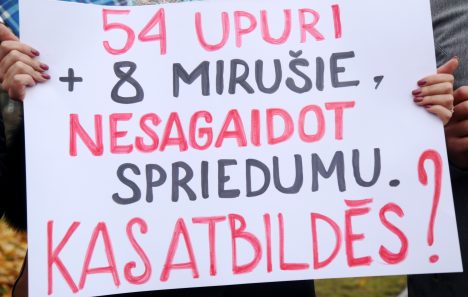 54 UPURI
+ 8 MIRUŠIE,
NESAGAIDOT
SPRIEDUMU.
KAS ATBILDĒS?